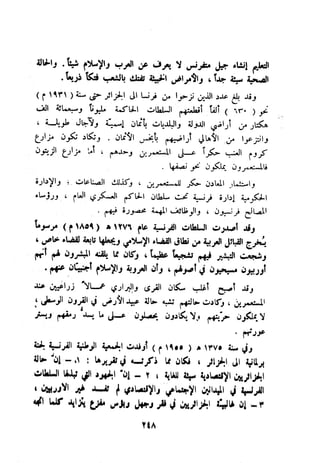 التعليم إنشاء جيل متفرنس لا يعرف عن العرب والإسلام شيئاً . والحالة
الصحية سيئة جداً ، والأمراض الخبيثة تفتك بالشعب فتكاً ذريعاً .
وقد بلغ عدد الذين نزحوا من فرنسا الى الجزائر حتى سنة ( ١٩٣١ م )
نحو ( ٦٣٠ ) ألفاً أقطعتهم السلطات الحاكمة مليوناً وسبعمائة الف
هكتار من أراضي الدولة والبلديات بأثمان إسمية ولآجال طويلة ،
وانتزعوا من الأهالي أراضيهم بأبخس الأثمان . وتكاد تكون مزارع
كروم العنب حكراً على المستعمرين وحدهم ، أما مزارع الزيتون
فالمستعمرون يملكون نحو نصفها .
واستثمار المعادن حكر للمستعمرين ، وكذلك الصناعات ؛ والإدارة
الحكومية إدارة فرنسية تحت سلطان الحاكم العسكري العام ، ورؤساء
المصالح فرنسيون ، والوظائف المهمة محصورة فيهم .
وقد أصدرت السلطات الفرنسية عام ١٢٧٦ هـ ( ١٨٥٩ م ) مرسوماً
يُخرج القبائل العربية من نطاق القضاء الإسلامي ويجعلها تابعة لقضاء خاص ،
وشجعت التبشير فيهم تشجيعاً عظيماً ، وكان مما يلقنه المبشرون لهم أنهم
أوربيون مسيحيون في أصولهم ، وأن العروبة والإسلام أجنبيان عنهم .
وقد أصبح أغلب سكان القرى والبراري عمالا زراعيين عند
المستعمرين ، وكادت حالتهم تشبه حالة عبيد الأرض في القرون الوسطى ؛
لا يملكون حريتهم ولا يكادون يحصلون على ما يسد رمقهم ويستر
عورتهم .
وفي سنة ١٣٧٥ هـ ( ١٩٥٥ م ) أوفدت الجمعية الوطنية الفرنسية لجنة
برلمانية الى الجزائر ، فكان مما ذكرته في تقريرها : ١ - إن حالة
الجزائريين الإقتصادية سيئة للغاية ، ٢ - إن الجهود التي تبذلها السلطات
الفرنسية في الميدانين الإجتماعي والإقتصادي لم تفد غير الأوربيين ،
٣ - إن غالبية الجزائريين في فقر وجهل وبؤس مفزع يتزايد كلما اتجه
٢٤٨